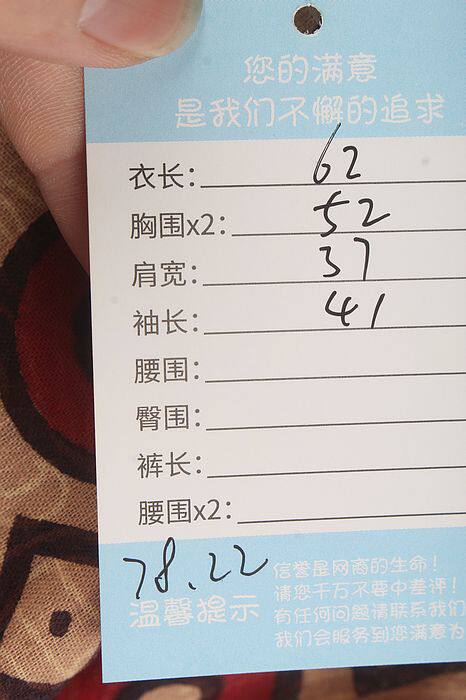 您的满意
是我们不懈的追求
衣长: 62
胸围x2: 52
肩宽: 37
袖长: 41
腰围:
臀围:
裤长:
腰围x2:
78.22
温馨提示
信誉是网商的生命!
请您千万不要中差评!
有任何问题请联系我们
我们会服务到您满意为